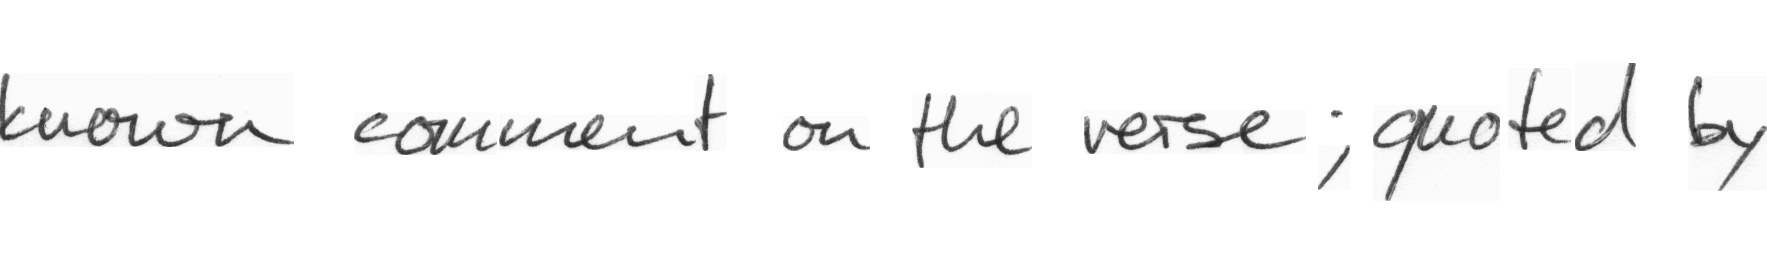 known comment on the verse; quoted by